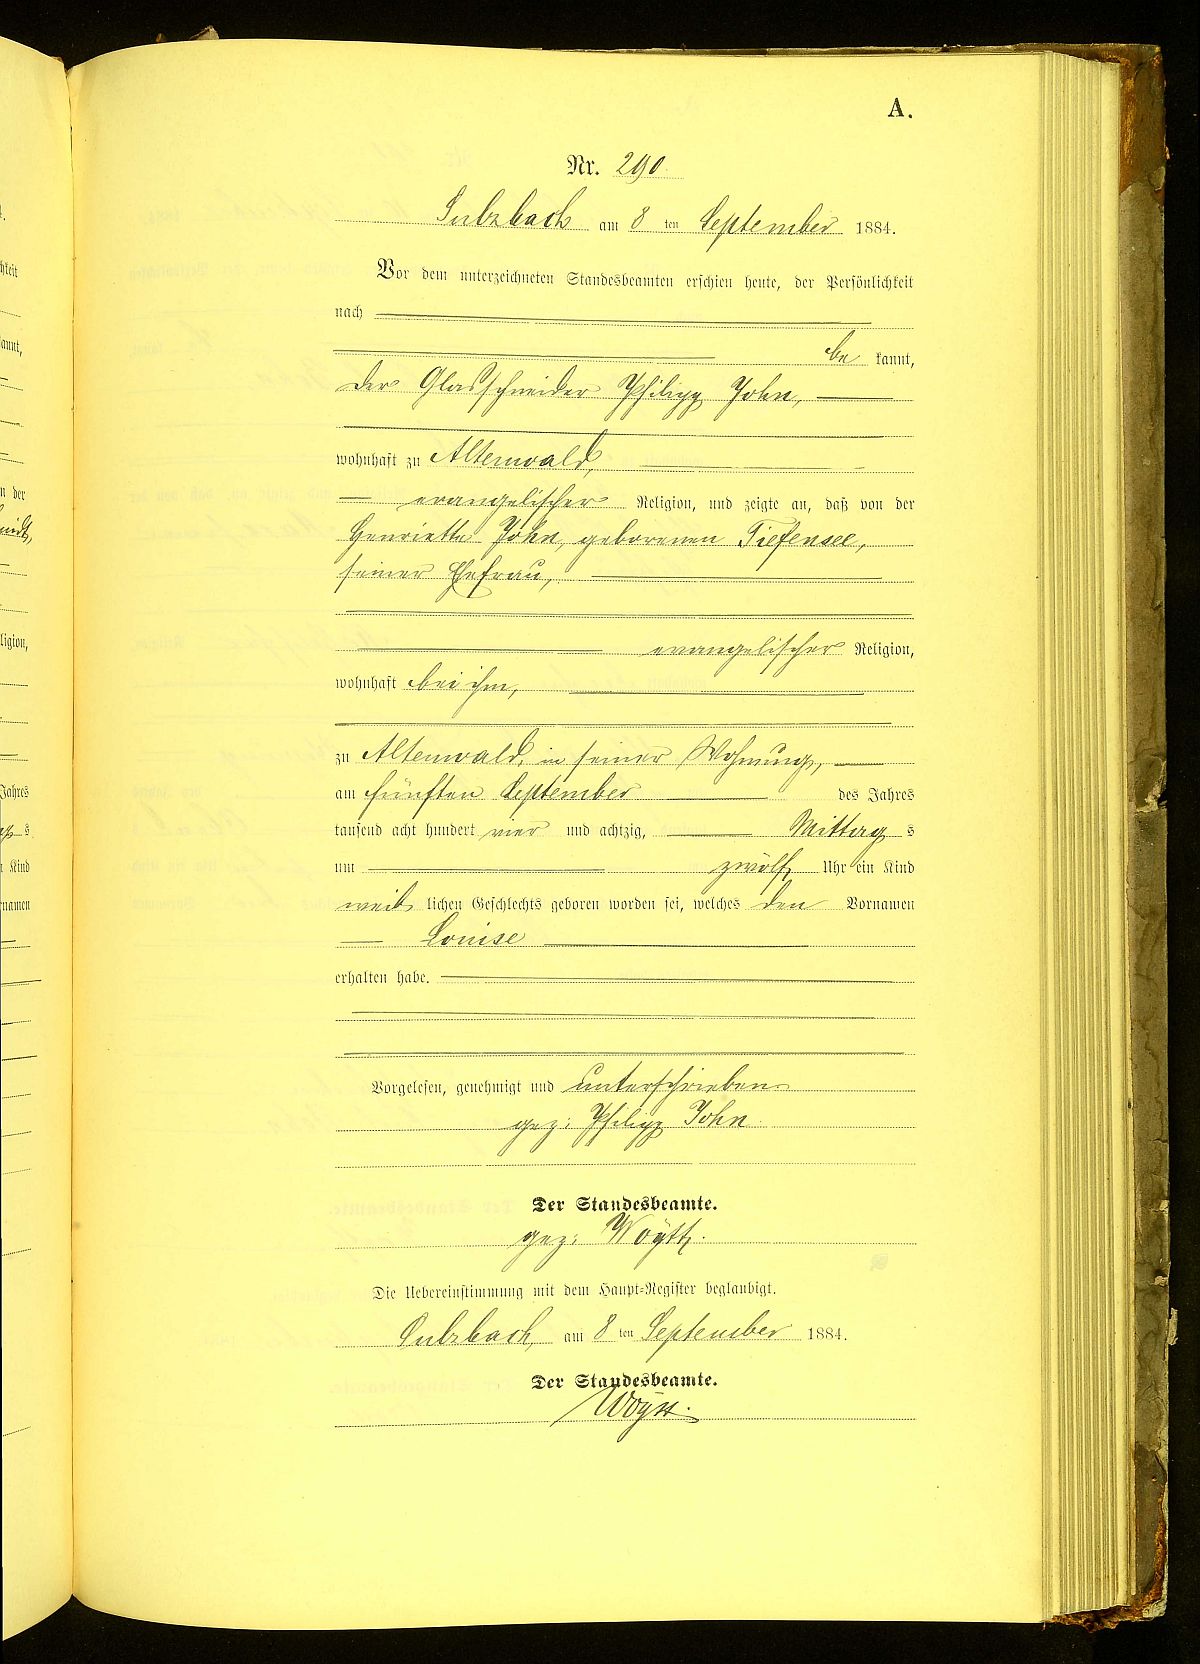 A.
Nr. 290.
Sulzbach am 8 ten September 1884.
Vor dem unterzeichneten Standesbeamten erschien heute, der Persönlichkeit
nach
be kannt,
der Glasschneider Philipp John,
wohnhaft zu Altenwald,
evangelischer Religion, und zeigte an, daß von der
Henriette John, geborenen Tiefensee,
seiner Ehefrau,
evangelischer Religion,
wohnhaft bei ihm,
zu Altenwald, in seiner Wohnung,
am fünften September des Jahres
tausend acht hundert vier und achtzig, Mittag s
um zwölf Uhr ein Kind
weib lichen Geschlechts geboren worden sei, welches den Vornamen
Louise
erhalten habe.
Vorgelesen, genehmigt und unterschrieben
gez: Philipp John.
Der Standesbeamte.
gez: Woytt.
Die Uebereinstimmung mit dem Haupt-Register beglaubigt.
Sulzbach, am 8 ten September 1884.
Der Standesbeamte.
Woytt.